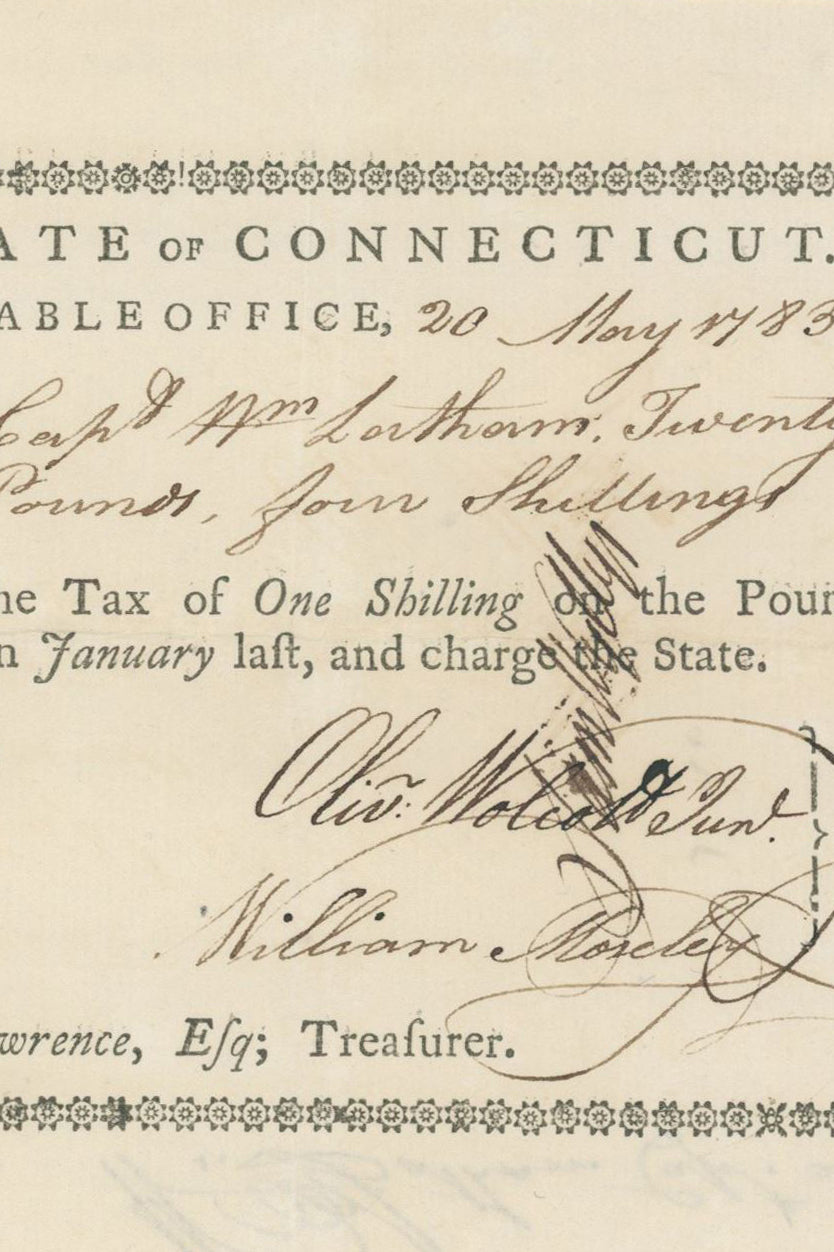 ATE OF CONNECTICUT.
ABLE OFFICE, 20 May 1783
Capt Wm Latham, Twenty
Pounds, four Shillings
he Tax of One Shilling on the Poun
n January laſt, and charge the State.
Olivr. Wolcott Junr.
William Moseley
wrence, Eſq; Treaſurer.